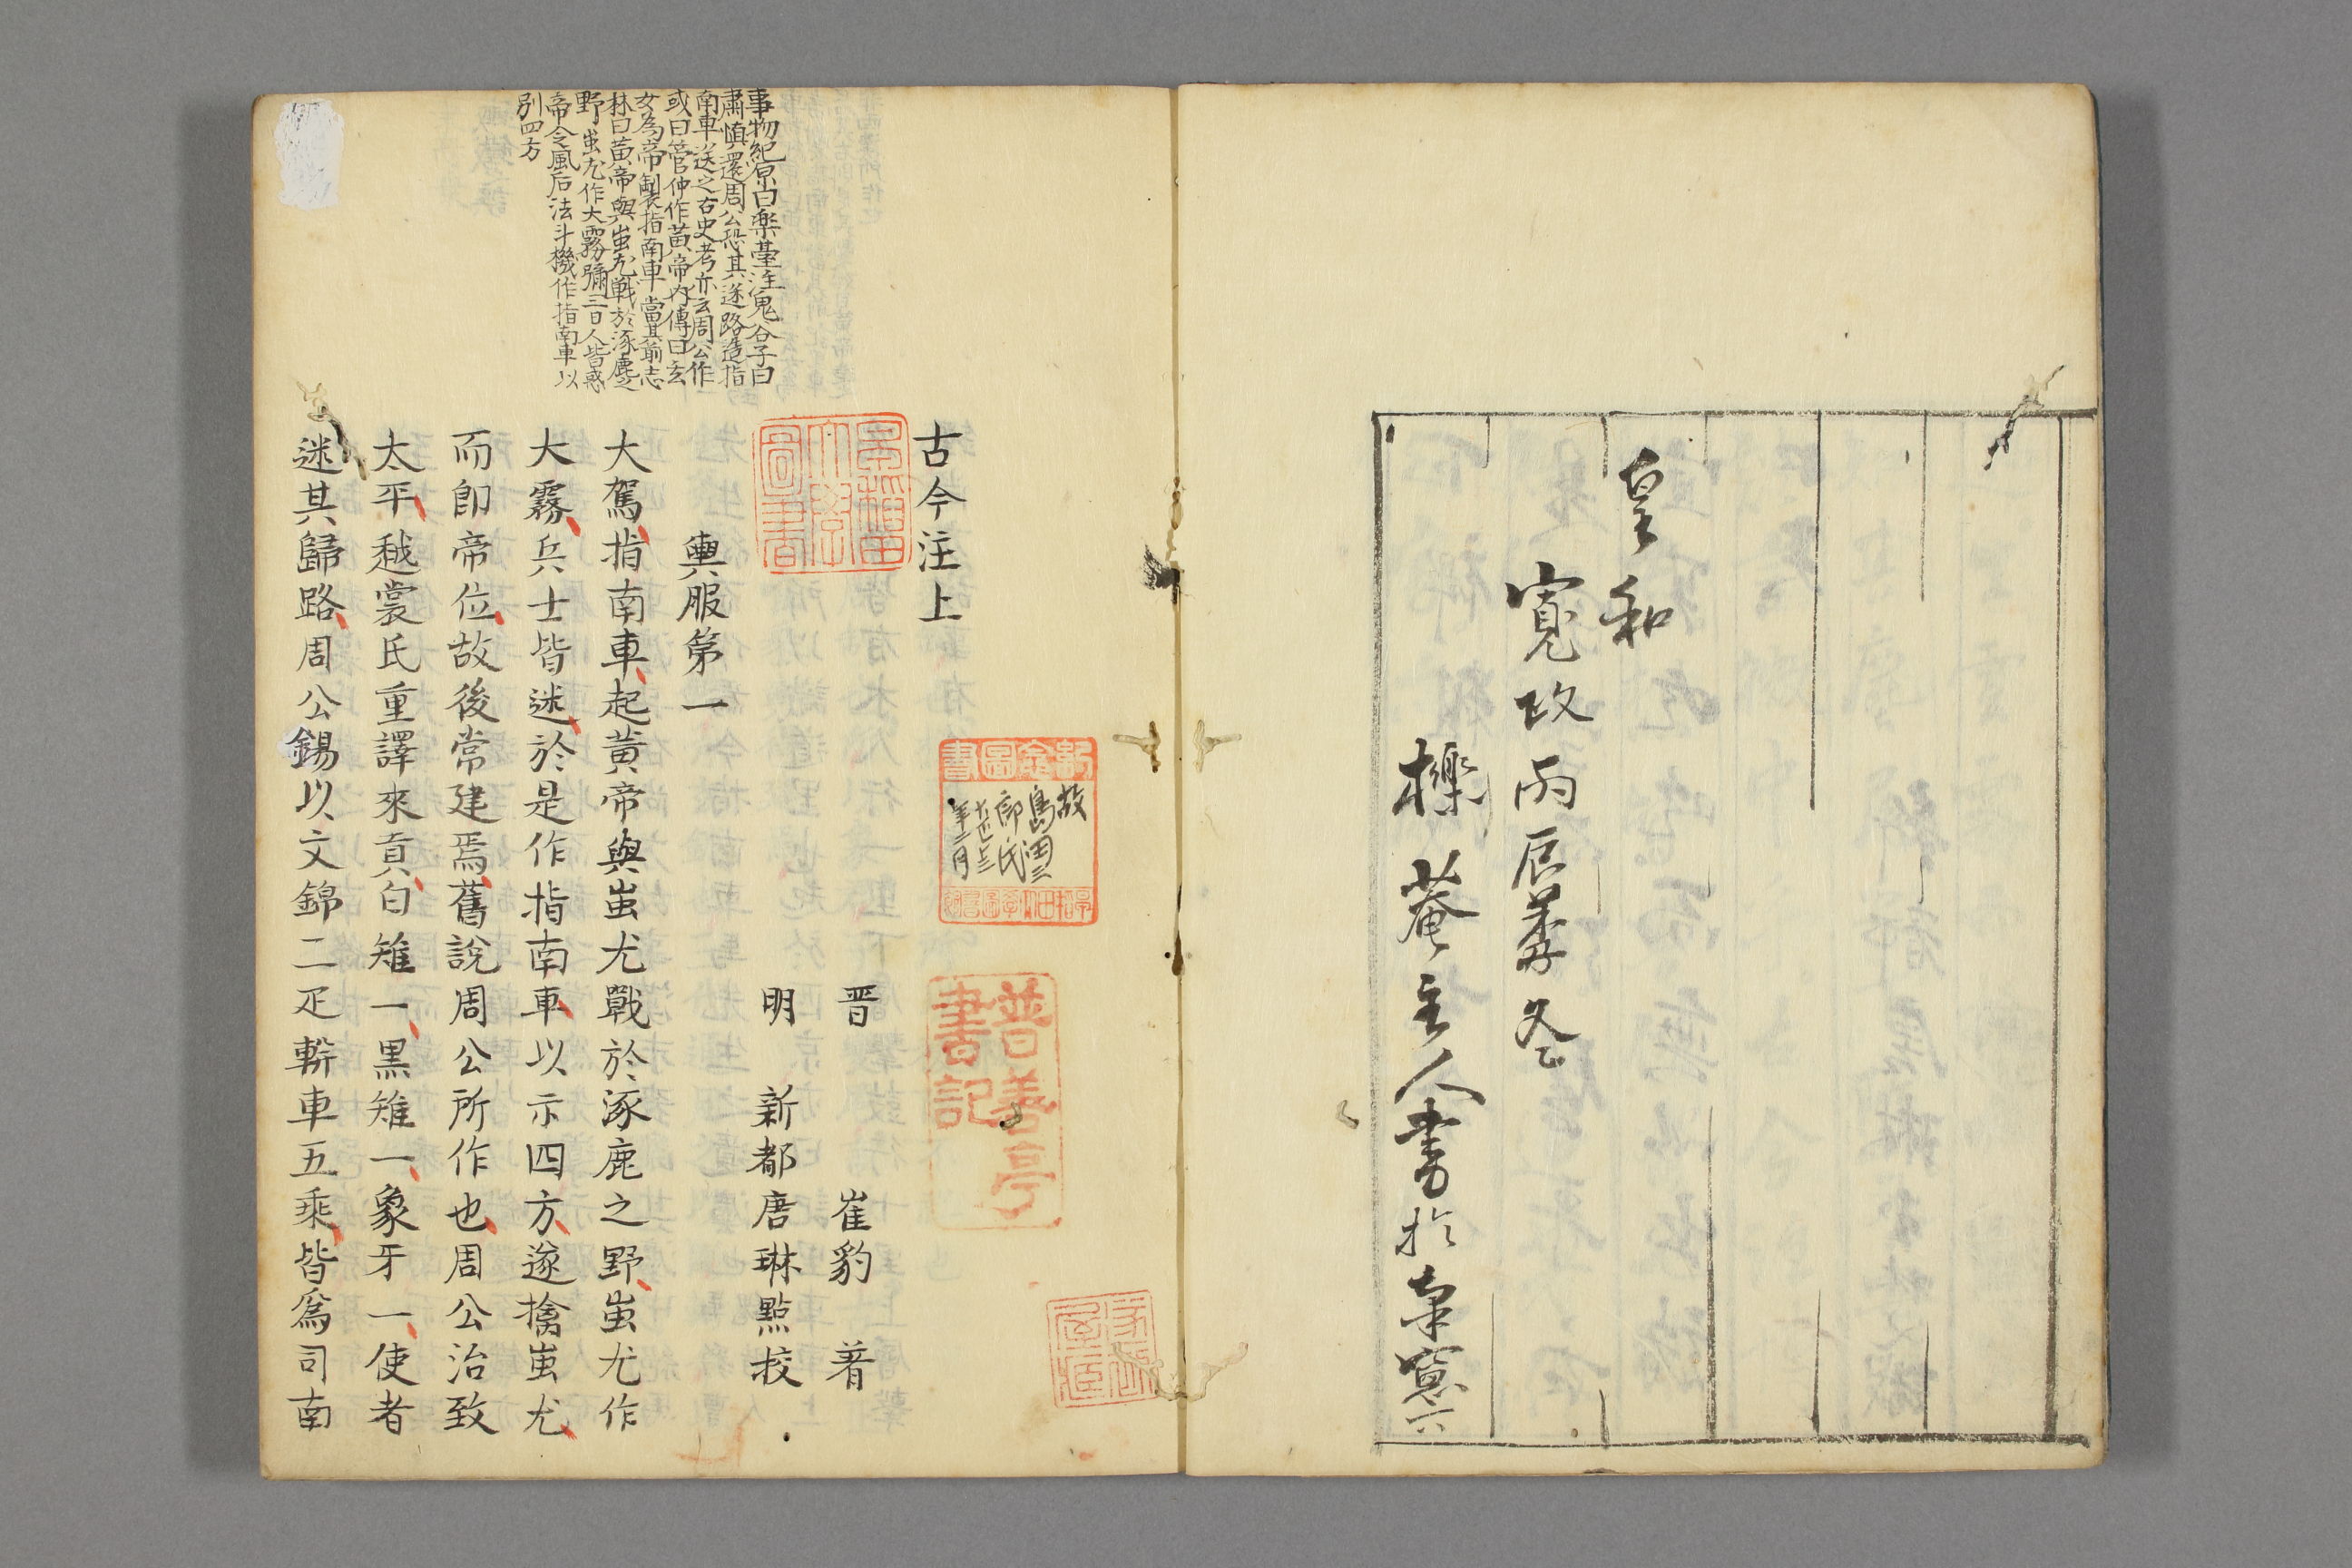 皇和
寛政丙辰暮冬
櫟菴主人書於南窓下
古今注上
晋 崔豹 著
明 新都唐琳點挍
輿服第一
大駕指南車起黄帝與蚩尤戰於涿鹿之野蚩尤作
大霧兵士皆迷於是作指南車以示四方遂擒蚩尤
而即帝位故後常建焉舊說周公所作也周公治致
太平越裳氏重譯來貢白雉一黒雉一象牙一使者
迷其歸路周公錫以文錦二疋軿車五乘皆爲司南
事物紀原曰楽臺注鬼谷子曰
肅愼還周公恐其迷路造指
南車送之古史考亦云周公作
或曰管仲作黄帝内傳曰玄
女為帝製指南車當其前志
林曰黄帝與蚩尤戰於涿鹿之
野蚩尤作大霧彌三日人皆惑
帝令風后法斗機作指南車以
別四方
早稲田
大學
圖書
故
島田三
郎氏
大正十三
年二月
普善亭
書記